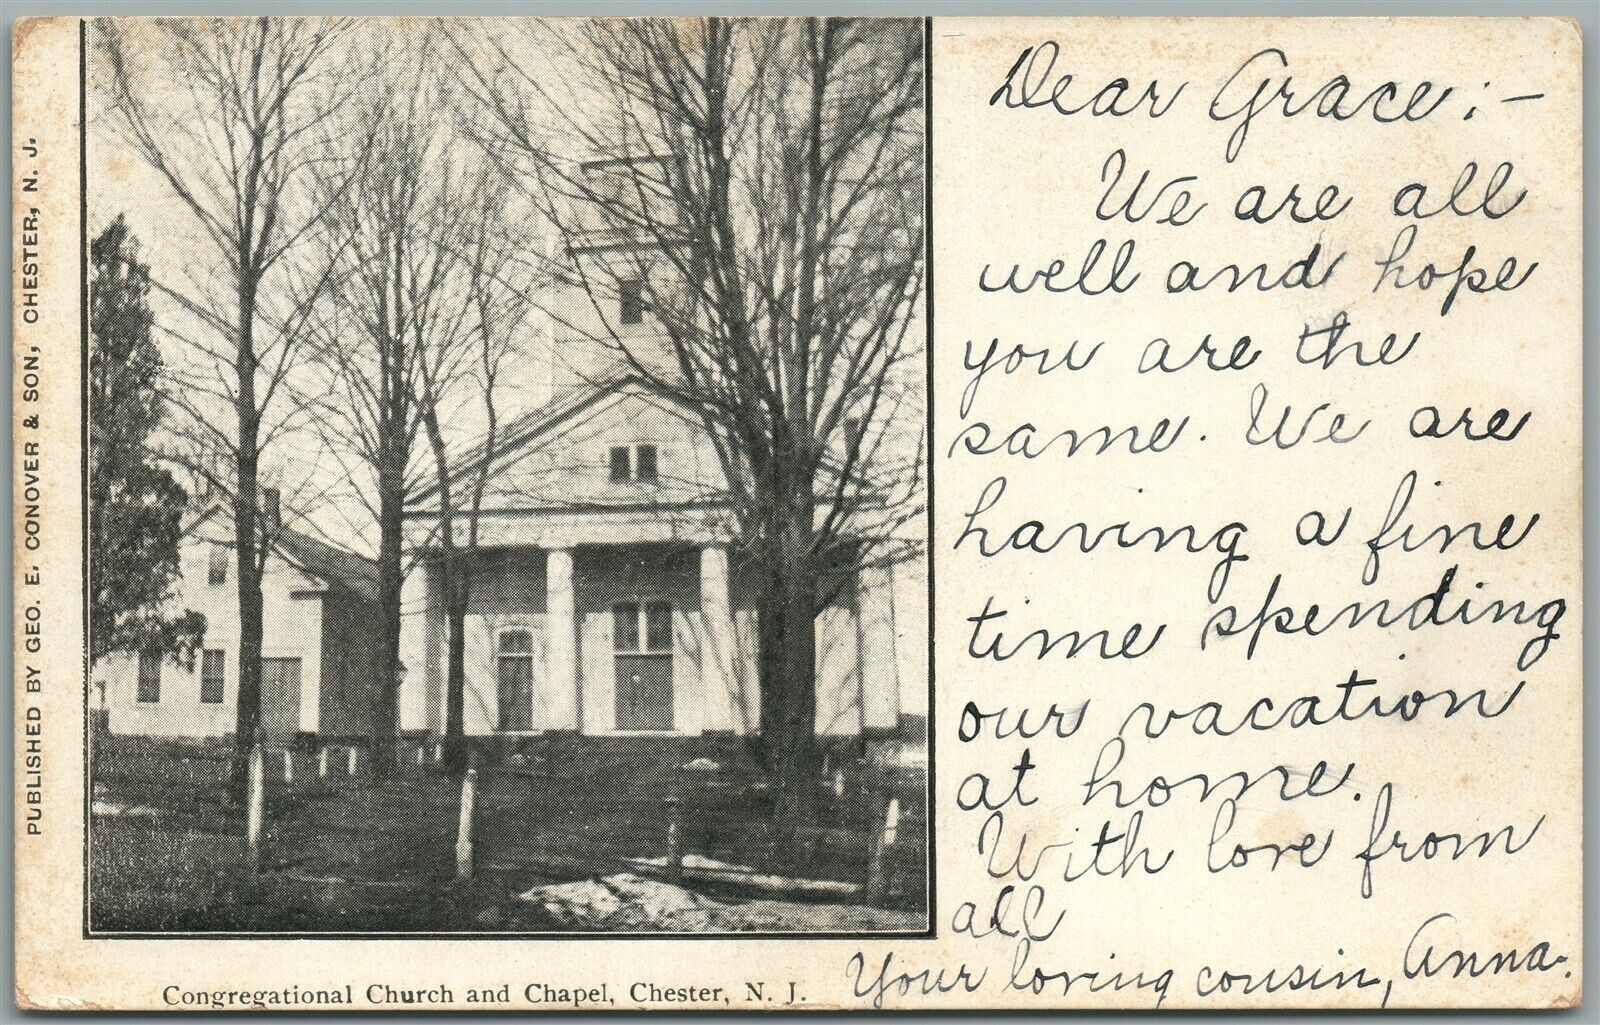 PUBLISHED BY GEO. E. CONOVER & SON, CHESTER, N. J.
Dear Grace;—
We are all
well and hope
you are the
same. We are
having a fine
time spending
our vacation
at home.
With love from
all
Your loving cousin, Anna.
Congregational Church and Chapel, Chester, N. J.